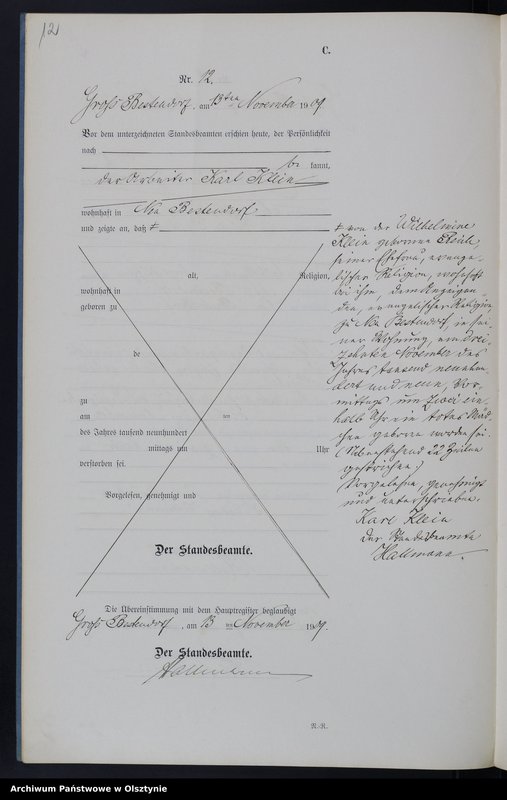 12
C.
Nr. 12.
Groß Bestendorf, am 13ten November 1909.
Vor dem unterzeichneten Standesbeamten erschien heute, der Persönlichkeit
nach
be kannt,
der Arbeiter Karl Klein
wohnhaft in Neu Bestendorf
und zeigte an, daß
alt, Religion,
wohnhaft in
geboren zu
de
zu
am ten
des Jahres tausend neunhundert
mittags um Uhr
verstorben sei.
Vorgelesen, genehmigt und
Der Standesbeamte.
von der Wilhelmine
Klein geborene
seiner Ehefrau, evange-
lischer Religion, wohnhaft
bei ihm dem Anzeigen-
den, evangelischer Religion,
zu Neu Bestendorf in sei-
ner Wohnung, am drei-
zehnten November des
Jahres tausend neunhun-
dert und neun, Vor-
mittags um zwei ein-
halb Uhr ein totes Mäd-
chen geboren worden sei.
(Nebenstehend 22 Zeilen
gestrichen)
Vorgelesen, genehmigt
und unterschrieben.
Karl Klein
der Standesbeamte
Hallmann.
Die Übereinstimmung mit dem Hauptregister beglaubigt
Groß Bestendorf, am 13 ten November 1909.
Der Standesbeamte.
Hallmann
Archiwum Państwowe w Olsztynie